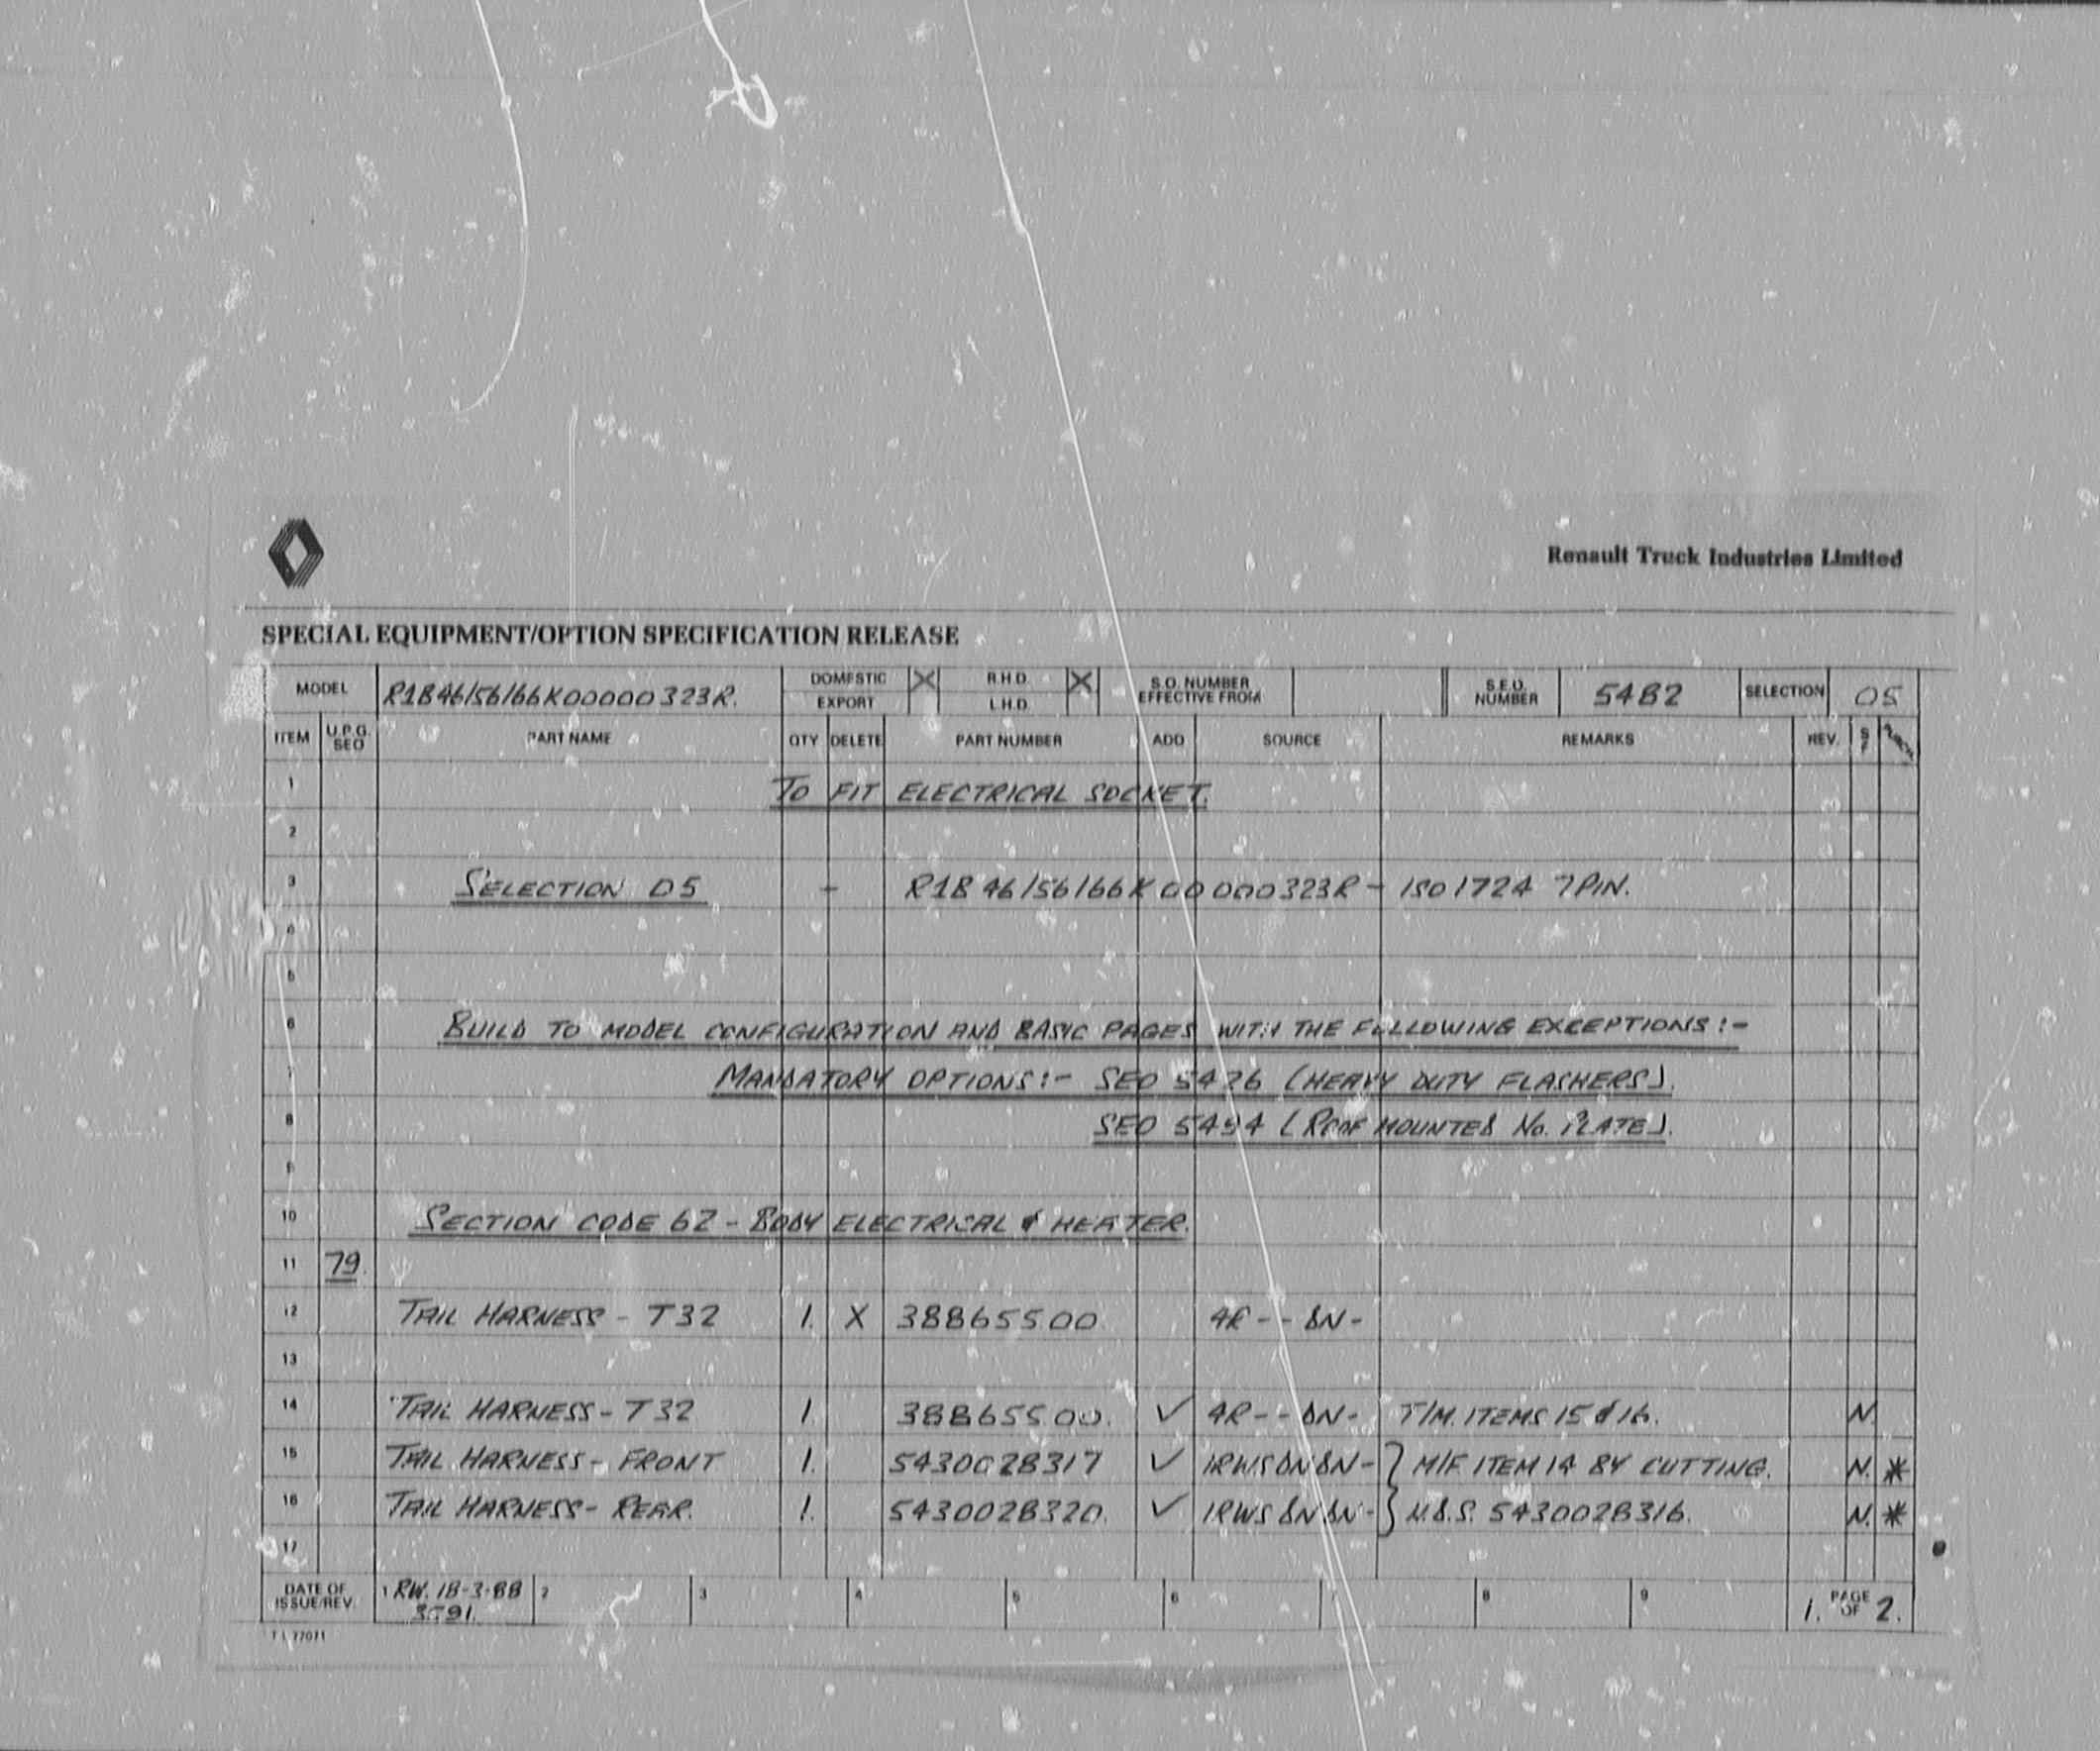 Renault Truck Industries Limited
SPECIAL EQUIPMENT/OPTION SPECIFICATION RELEASE
MODEL R1B46/56/66K00000323R. DOMESTIC X EXPORT R.H.D. X L.H.D. S.O. NUMBER EFFECTIVE FROM S.E.O. NUMBER 5482 SELECTION 05
ITEM U.P.G. SEO PART NAME QTY DELETE PART NUMBER ADD SOURCE REMARKS REV. S F
1 TO FIT ELECTRICAL SOCKET.
2
3 SELECTION 05 - R1B 46/56/66K00000323R - ISO 1724 7 PIN.
4
5
6 BUILD TO MODEL CONFIGURATION AND BASIC PAGES WITH THE FOLLOWING EXCEPTIONS:-
7 MANDATORY OPTIONS:- SEO 5426 (HEAVY DUTY FLASHERS).
8 SEO 5494 (ROOF MOUNTED No. PLATE).
9
10 SECTION CODE 62 - BODY ELECTRICAL & HEATER.
11 79.
12 TAIL HARNESS - T32 1. X 38865500 4R - - DN -
13
14 TAIL HARNESS - T32 1. 38865500. ✓ 4R - - DN - T/M. ITEMS 15 & 16. N.
15 TAIL HARNESS - FRONT 1. 5430028317 ✓ 1RWSDNDN - } M/F ITEM 14 BY CUTTING. N. *
16 TAIL HARNESS - REAR. 1. 5430028320. ✓ 1RWSDNDN - } U.B.S. 5430028316. N. *
17
DATE OF ISSUE/REV. 1 RW. 18-3-88 2 3 4 5 6 7 8 9 1. PAGE OF 2.
T L 77071